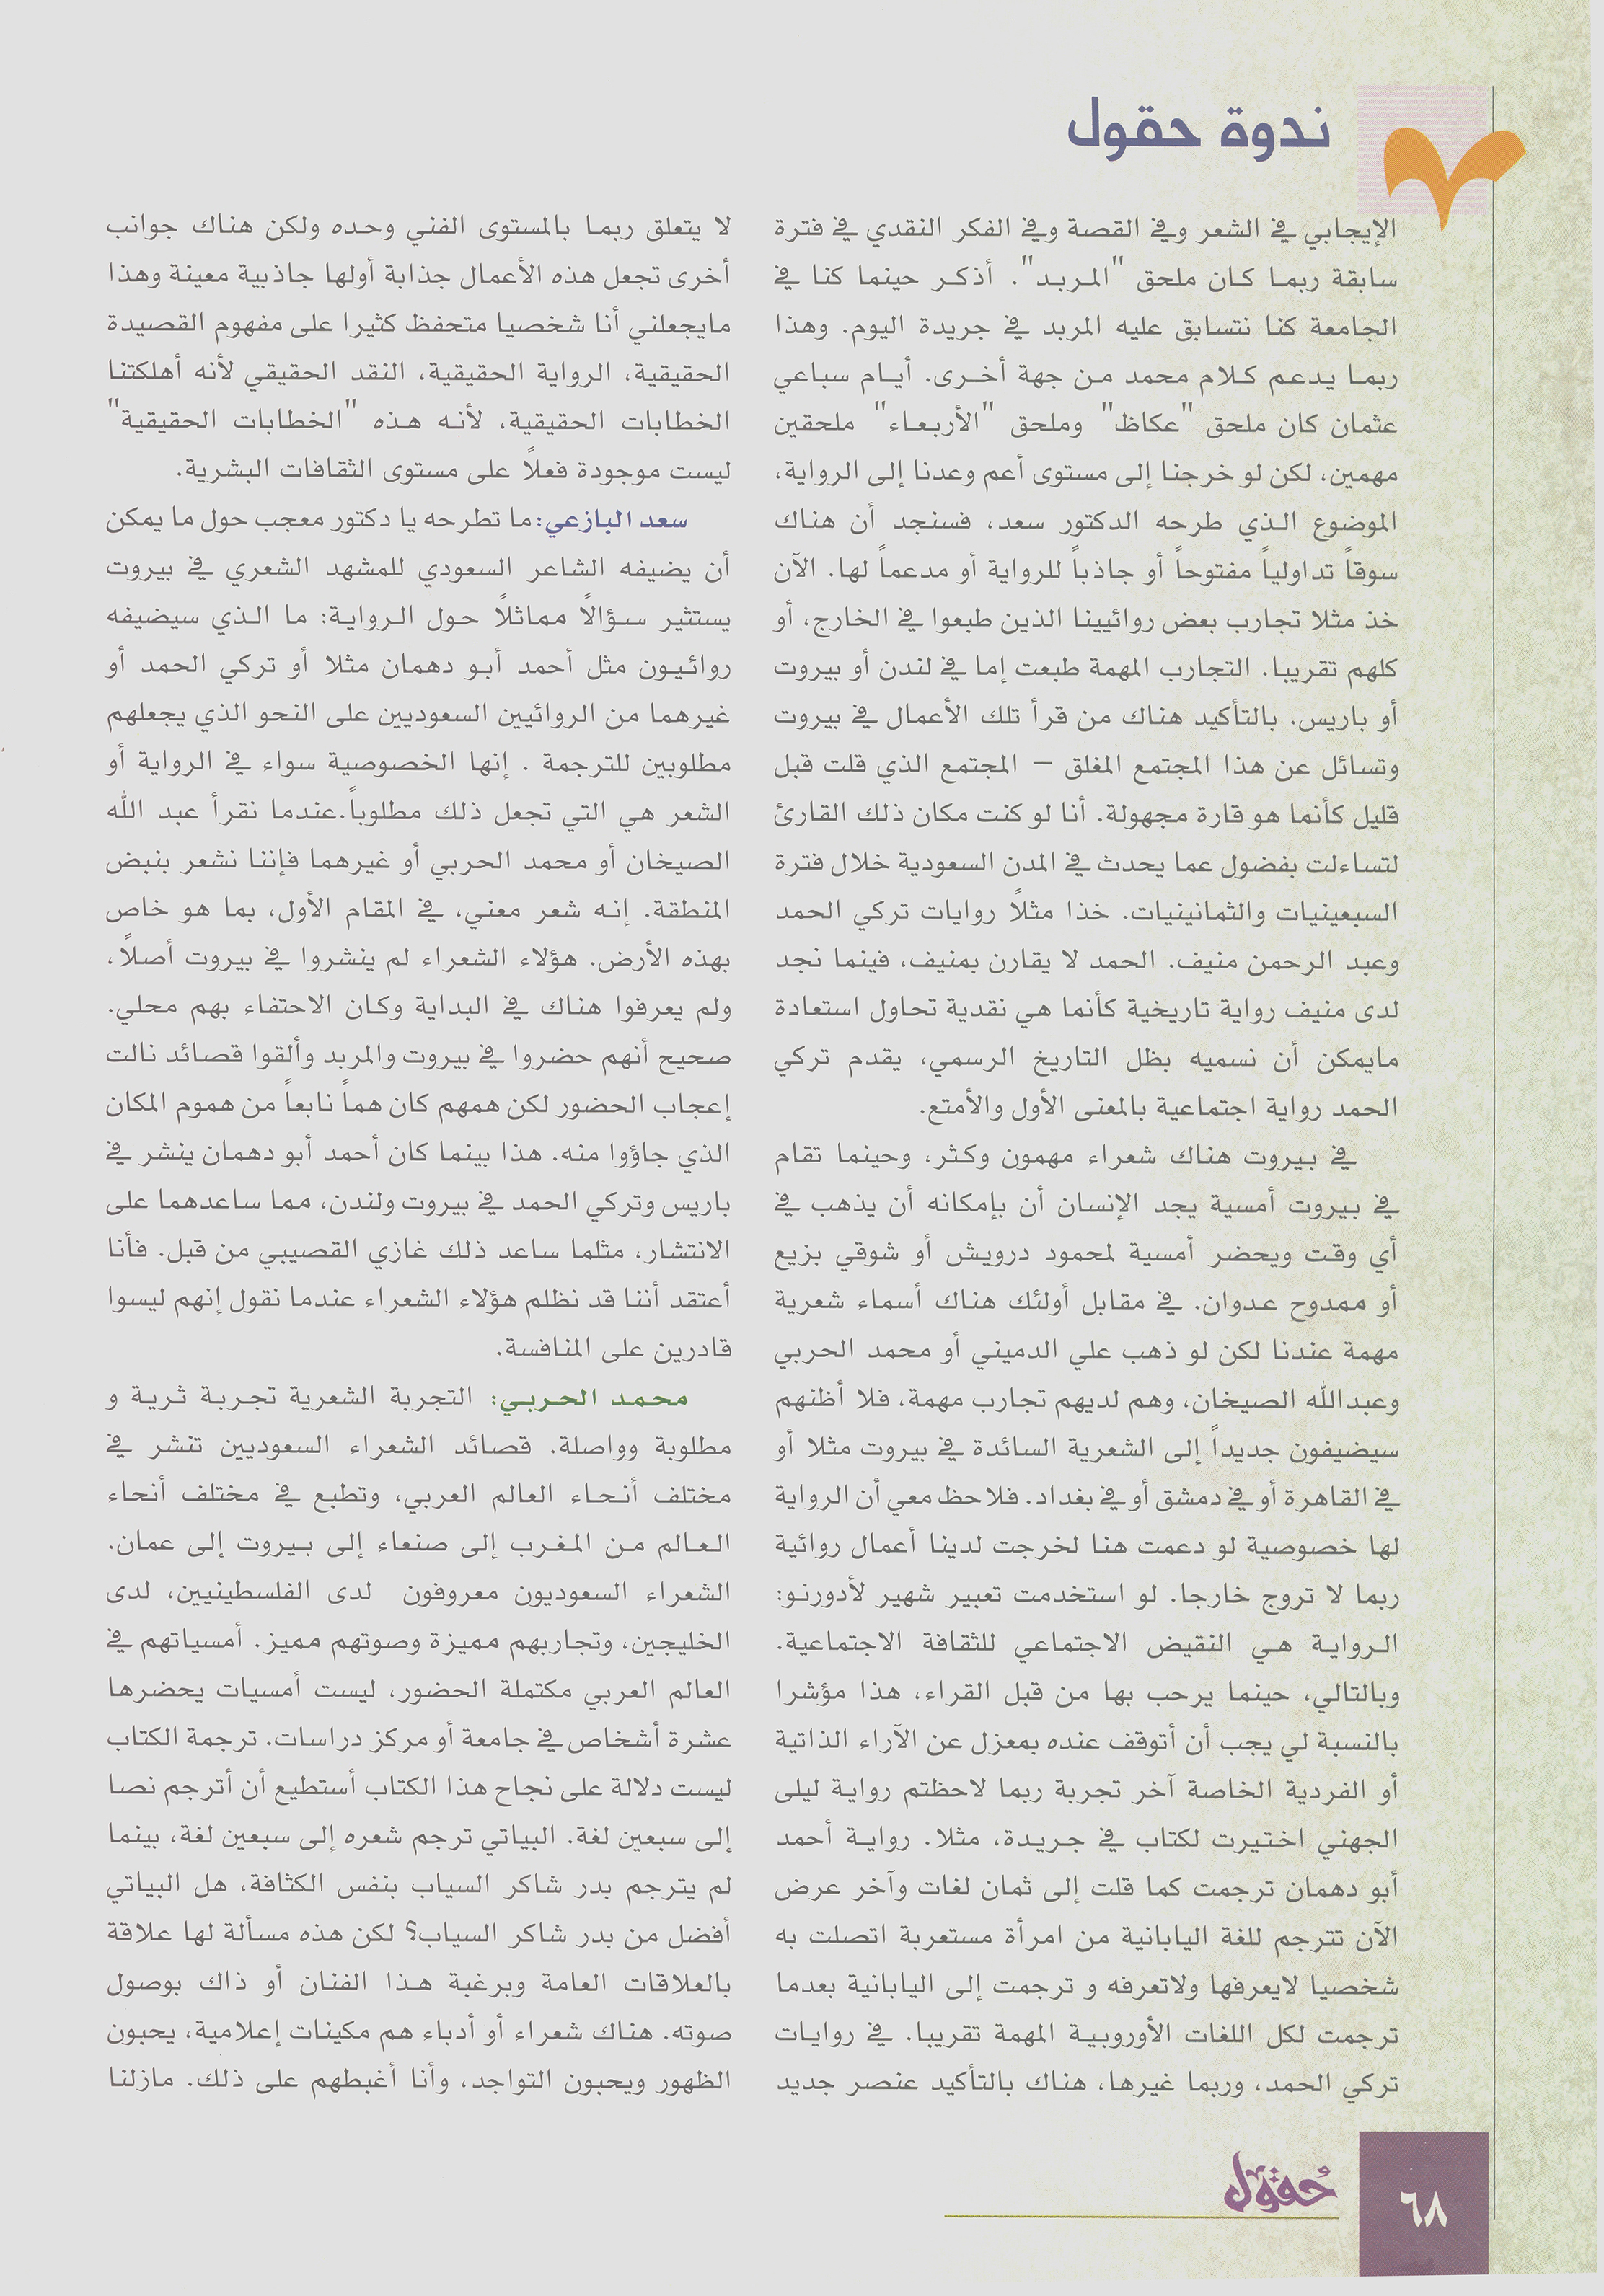 ندوة حقول
الإيجابي في الشعر وفي القصة وفي الفكر النقدي في فترة
سابقة ربما كان ملحق "المربد". أذكر حينما كنا في
الجامعة كنا نتسابق عليه المربد في جريدة اليوم. وهذا
ربما يدعم كلام محمد من جهة أخرى. أيام سباعي
عثمان كان ملحق "عكاظ" وملحق "الأربعاء" ملحقين
مهمين، لكن لو خرجنا إلى مستوى أعم وعدنا إلى الرواية،
الموضوع الذي طرحه الدكتور سعد، فسنجد أن هناك
سوقاً تداولياً مفتوحاً أو جاذباً للرواية أو مدعماً لها. الآن
خذ مثلا تجارب بعض روائيينا الذين طبعوا في الخارج، أو
كلهم تقريبا. التجارب المهمة طبعت إما في لندن أو بيروت
أو باريس. بالتأكيد هناك من قرأ تلك الأعمال في بيروت
وتسائل عن هذا المجتمع المغلق – المجتمع الذي قلت قبل
قليل كأنما هو قارة مجهولة. أنا لو كنت مكان ذلك القارئ
لتساءلت بفضول عما يحدث في المدن السعودية خلال فترة
السبعينيات والثمانينيات. خذا مثلاً روايات تركي الحمد
وعبد الرحمن منيف. الحمد لا يقارن بمنيف، فينما نجد
لدى منيف رواية تاريخية كأنما هي نقدية تحاول استعادة
مايمكن أن نسميه بظل التاريخ الرسمي، يقدم تركي
الحمد رواية اجتماعية بالمعنى الأول والأمتع.
في بيروت هناك شعراء مهمون وكثر، وحينما تقام
في بيروت أمسية يجد الإنسان أن بإمكانه أن يذهب في
أي وقت ويحضر أمسية لمحمود درويش أو شوقي بزيع
أو ممدوح عدوان. في مقابل أولئك هناك أسماء شعرية
مهمة عندنا لكن لو ذهب علي الدميني أو محمد الحربي
وعبدالله الصيخان، وهم لديهم تجارب مهمة، فلا أظنهم
سيضيفون جديداً إلى الشعرية السائدة في بيروت مثلا أو
في القاهرة أو في دمشق أو في بغداد. فلاحظ معي أن الرواية
لها خصوصية لو دعمت هنا لخرجت لدينا أعمال روائية
ربما لا تروج خارجا. لو استخدمت تعبير شهير لأدورنو:
الرواية هي النقيض الاجتماعي للثقافة الاجتماعية.
وبالتالي، حينما يرحب بها من قبل القراء، هذا مؤشرا
بالنسبة لي يجب أن أتوقف عنده بمعزل عن الآراء الذاتية
أو الفردية الخاصة آخر تجربة ربما لاحظتم رواية ليلى
الجهني اختيرت لكتاب في جريدة، مثلا. رواية أحمد
أبو دهمان ترجمت كما قلت إلى ثمان لغات وآخر عرض
الآن تترجم للغة اليابانية من امرأة مستعربة اتصلت به
شخصيا لايعرفها ولاتعرفه و ترجمت إلى اليابانية بعدما
ترجمت لكل اللغات الأوروبية المهمة تقريبا. في روايات
تركي الحمد، وربما غيرها، هناك بالتأكيد عنصر جديد
لا يتعلق ربما بالمستوى الفني وحده ولكن هناك جوانب
أخرى تجعل هذه الأعمال جذابة أولها جاذبية معينة وهذا
مايجعلني أنا شخصيا متحفظ كثيرا على مفهوم القصيدة
الحقيقية، الرواية الحقيقية، النقد الحقيقي لأنه أهلكتنا
الخطابات الحقيقية، لأنه هذه "الخطابات الحقيقية"
ليست موجودة فعلاً على مستوى الثقافات البشرية.
سعد البازعي: ما تطرحه يا دكتور معجب حول ما يمكن
أن يضيفه الشاعر السعودي للمشهد الشعري في بيروت
يستثير سؤالاً مماثلاً حول الرواية: ما الذي سيضيفه
روائيون مثل أحمد أبو دهمان مثلا أو تركي الحمد أو
غيرهما من الروائيين السعوديين على النحو الذي يجعلهم
مطلوبين للترجمة . إنها الخصوصية سواء في الرواية أو
الشعر هي التي تجعل ذلك مطلوباً.عندما نقرأ عبد الله
الصيخان أو محمد الحربي أو غيرهما فإننا نشعر بنبض
المنطقة. إنه شعر معني، في المقام الأول، بما هو خاص
بهذه الأرض. هؤلاء الشعراء لم ينشروا في بيروت أصلاً،
ولم يعرفوا هناك في البداية وكان الاحتفاء بهم محلي.
صحيح أنهم حضروا في بيروت والمربد وألقوا قصائد نالت
إعجاب الحضور لكن همهم كان هماً نابعاً من هموم المكان
الذي جاؤوا منه. هذا بينما كان أحمد أبو دهمان ينشر في
باريس وتركي الحمد في بيروت ولندن، مما ساعدهما على
الانتشار، مثلما ساعد ذلك غازي القصيبي من قبل. فأنا
أعتقد أننا قد نظلم هؤلاء الشعراء عندما نقول إنهم ليسوا
قادرين على المنافسة.
محمد الحربي: التجربة الشعرية تجربة ثرية و
مطلوبة وواصلة. قصائد الشعراء السعوديين تنشر في
مختلف أنحاء العالم العربي، وتطبع في مختلف أنحاء
العالم من المغرب إلى صنعاء إلى بيروت إلى عمان.
الشعراء السعوديون معروفون لدى الفلسطينيين، لدى
الخليجين، وتجاربهم مميزة وصوتهم مميز. أمسياتهم في
العالم العربي مكتملة الحضور، ليست أمسيات يحضرها
عشرة أشخاص في جامعة أو مركز دراسات. ترجمة الكتاب
ليست دلالة على نجاح هذا الكتاب أستطيع أن أترجم نصا
إلى سبعين لغة. البياتي ترجم شعره إلى سبعين لغة، بينما
لم يترجم بدر شاكر السياب بنفس الكثافة، هل البياتي
أفضل من بدر شاكر السياب؟ لكن هذه مسألة لها علاقة
بالعلاقات العامة وبرغبة هذا الفنان أو ذاك بوصول
صوته. هناك شعراء أو أدباء هم مكينات إعلامية، يحبون
الظهور ويحبون التواجد، وأنا أغبطهم على ذلك. مازلنا
حُقول
٦٨